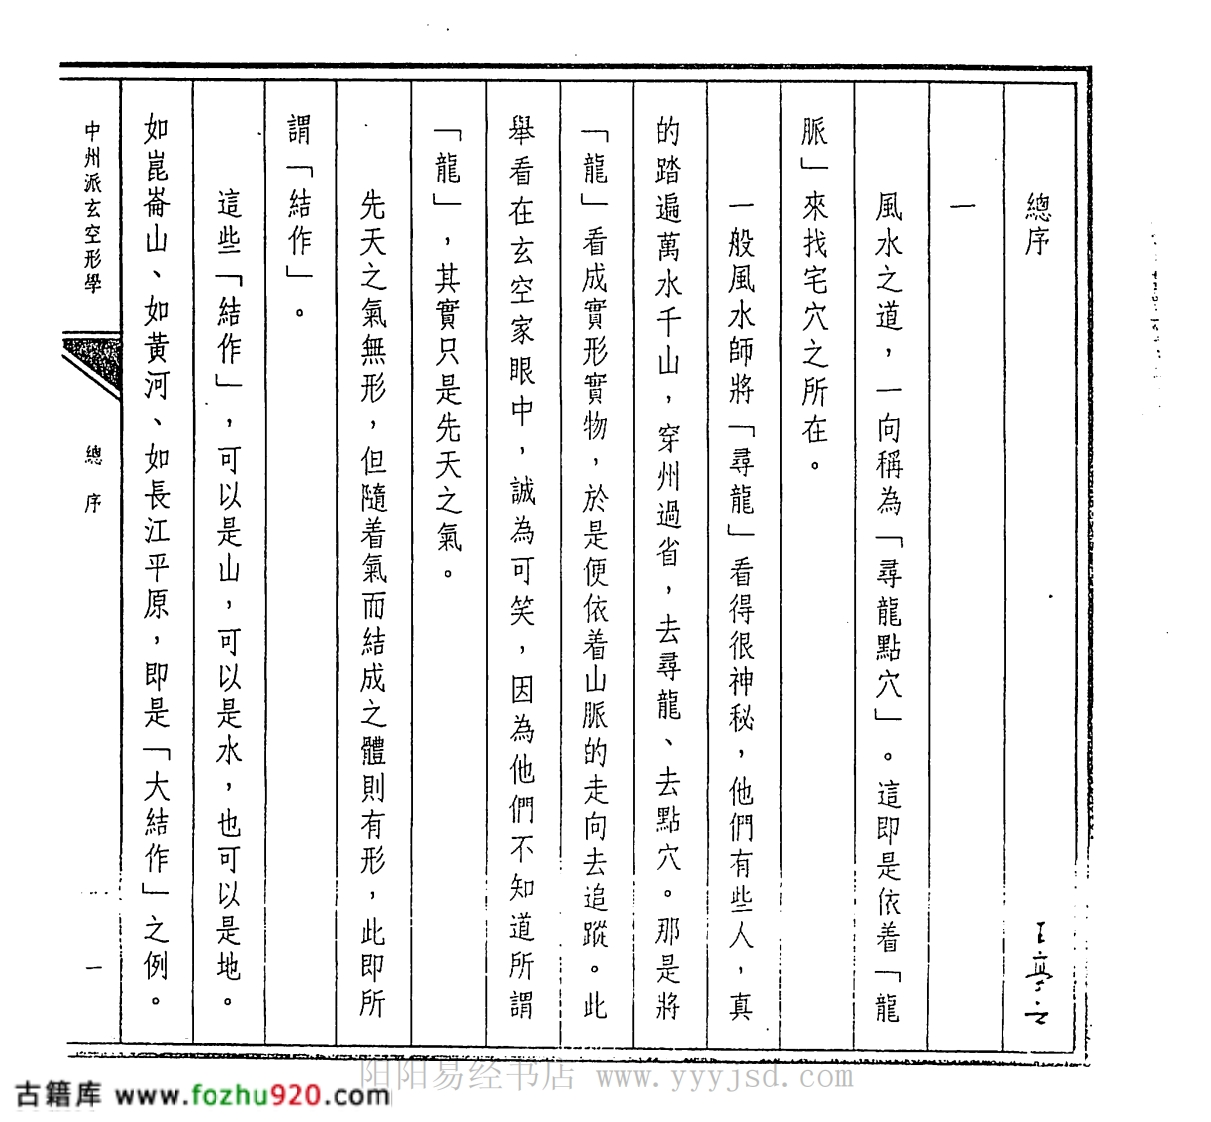 總序
王亭之
一
風水之道，一向稱為「尋龍點穴」。這即是依着「龍
脈」來找宅穴之所在。
一般風水師將「尋龍」看得很神秘，他們有些人，真
的踏遍萬水千山，穿州過省，去尋龍、去點穴。那是將
「龍」看成實形實物，於是便依着山脈的走向去追蹤。此
舉看在玄空家眼中，誠為可笑，因為他們不知道所謂
「龍」，其實只是先天之氣。
先天之氣無形，但隨着氣而結成之體則有形，此即所
謂「結作」。
這些「結作」，可以是山，可以是水，也可以是地。
如崑崙山、如黃河、如長江平原，即是「大結作」之例。
中州派玄空形學
總序
一
阳阳易经书店 www.yyyjsd.com
古籍库 www.fozhu920.com